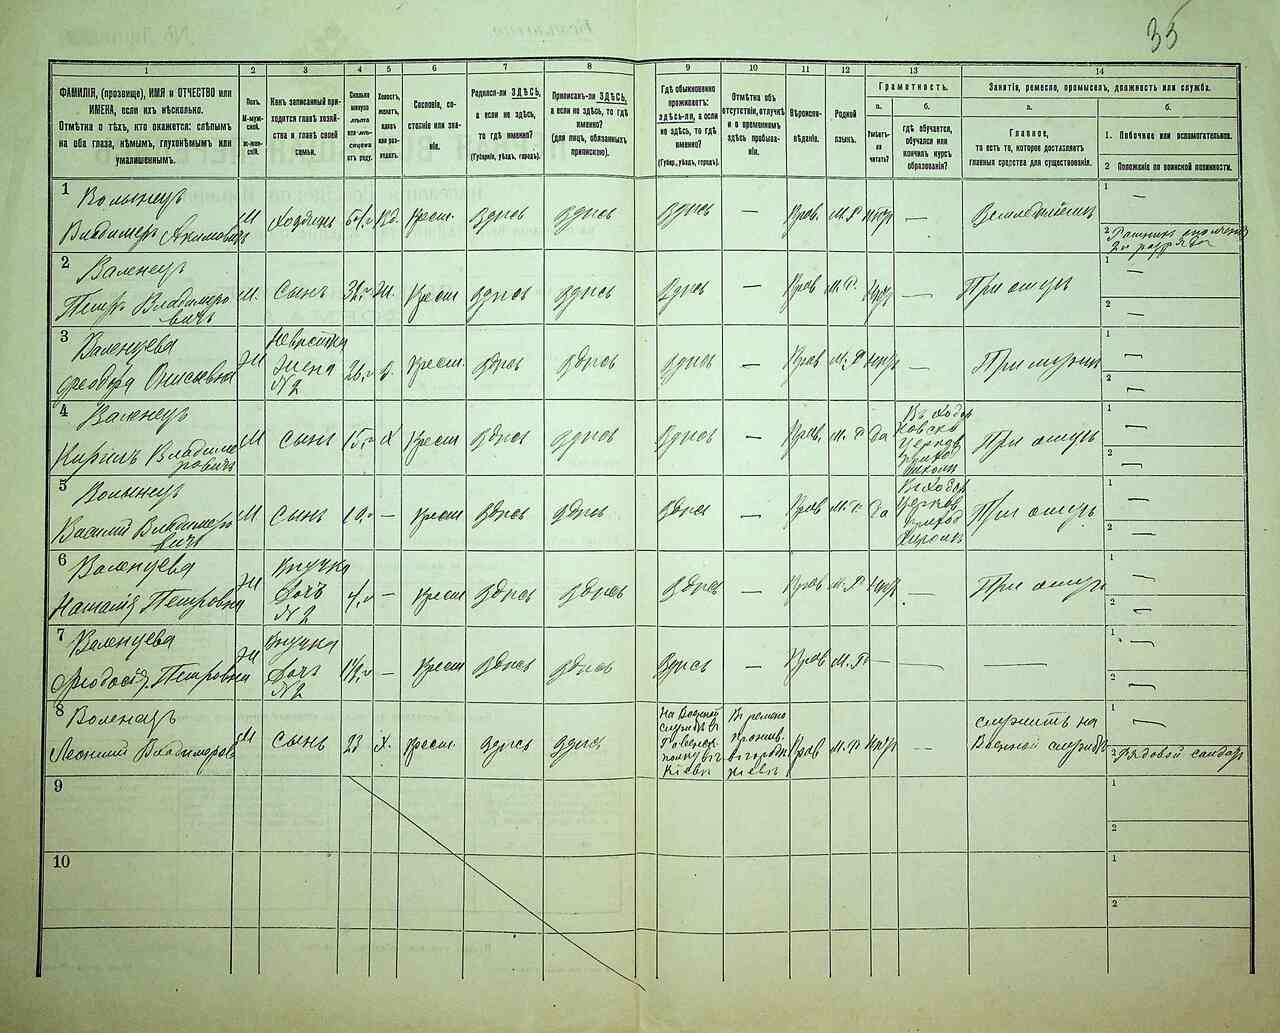 35
1
2
3
4
5
6
7
8
9
10
11
12
13
14
ФАМИЛІЯ, (прозвище), ИМЯ и ОТЧЕСТВО или
ИМЕНА, если ихъ нѣсколько.
Отмѣтка о тѣхъ, кто окажется: слѣпымъ
на оба глаза, нѣмымъ, глухонѣмымъ или
умалишеннымъ.
Полъ.
М-муж-
ской.
ж-жен-
скій.
Какъ записанный при-
ходится главѣ хозяй-
ства и главѣ своей
семьи.
Сколько
минуло
лѣтъ
отъ роду.
Холостъ,
женатъ,
вдовъ
или раз-
веденъ.
Сословіе, со-
стояніе или зва-
ніе.
Родился-ли ЗДѢСЬ,
а если не здѣсь,
то гдѣ именно?
(Губернія, уѣздъ, городъ).
Приписанъ-ли ЗДѢСЬ,
а если не здѣсь, то гдѣ
именно?
(для лицъ, обязанныхъ
припискою).
Гдѣ обыкновенно
проживаетъ:
здѣсь-ли, а если
не здѣсь, то гдѣ
именно?
(Губерн., уѣздъ, городъ).
Отмѣтка объ
отсутствіи, отлучкѣ
и о временномъ
здѣсь пребыва-
ніи.
Вѣроиспо-
вѣданіе.
Родной
языкъ.
Грамотность.
а.
Умѣетъ-
ли чи-
тать?
б.
гдѣ обучается,
обучался или
кончилъ курсъ
образованія?
Занятія, ремесло, промыселъ, должность или служба.
а.
Главное,
то есть то, которое доставляетъ
главныя средства для существованія.
б.
1. Побочное или вспомогательное.
2 Положеніе по воинской повинности.
1
Волынецъ
Владимеръ Акимовичъ
М
Хозяинъ
Крест.
Здѣсь
Здѣсь
Здѣсь
—
Прав.
М. Р
нѣтъ
—
Земледѣлецъ
1
—
2
Ратникъ ополченія
2го разряда
2
Валенецъ
Петръ Владимеро
вичъ
М.
Сынъ
Крест
Здѣсь
Здѣсь
Здѣсь
—
Прав
М. Р.
нѣтъ
—
При отцѣ
1
—
2
—
3
Валенцева
Феодора Онисьевна
Ж
Невѣстка
Жена
№2
Крест.
Здѣсь
Здѣсь
Здѣсь
—
Прав
М. Р
нѣтъ
—
При мужѣ
1
—
2
—
4
Валенецъ
Кирилъ Владиме
ровичъ
М
Сынъ
15
Х
Крест
Здѣсь
Здѣсь
Здѣсь
—
Прав.
М. Р
Да
Церков
приход
школѣ
При отцѣ
1
—
2
—
5
Волынецъ
Василій Владимеро
вичъ
М
Сынъ
10
—
Крест
Здѣсь
Здѣсь
Здѣсь
—
Прав
М. Р.
Да
Церков
приход
При отцѣ
1
—
2
—
6
Валенцева
Наталія Петровна
Ж
Внучка
Дочь
№2
4
—
Крест
Здѣсь
Здѣсь
Здѣсь
—
Прав
М. Р
нѣтъ
—
При отцѣ
1
—
2
—
7
Валенцева
Феодосія Петровна
Ж
Внучка
Дочь
№2
—
Крест
Здѣсь
Здѣсь
Здѣсь
—
Прав
М. Р
—
—
—
1
—
2
—
8
Воленецъ
Леонтій Владимеров
М
Сынъ
23
Х.
Крест.
Здѣсь
Здѣсь
На Военной
службѣ в
полку въ г
Кіевѣ
Времено
прожив.
в городѣ
Кіевѣ
Прав
М. Р
нѣтъ
—
служитъ на
Военной службѣ
1
—
2
Рядовой солдатъ
9
1
2
10
1
2